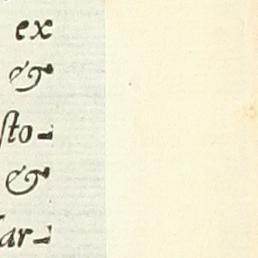 ex
&
ſto-
&
ar-